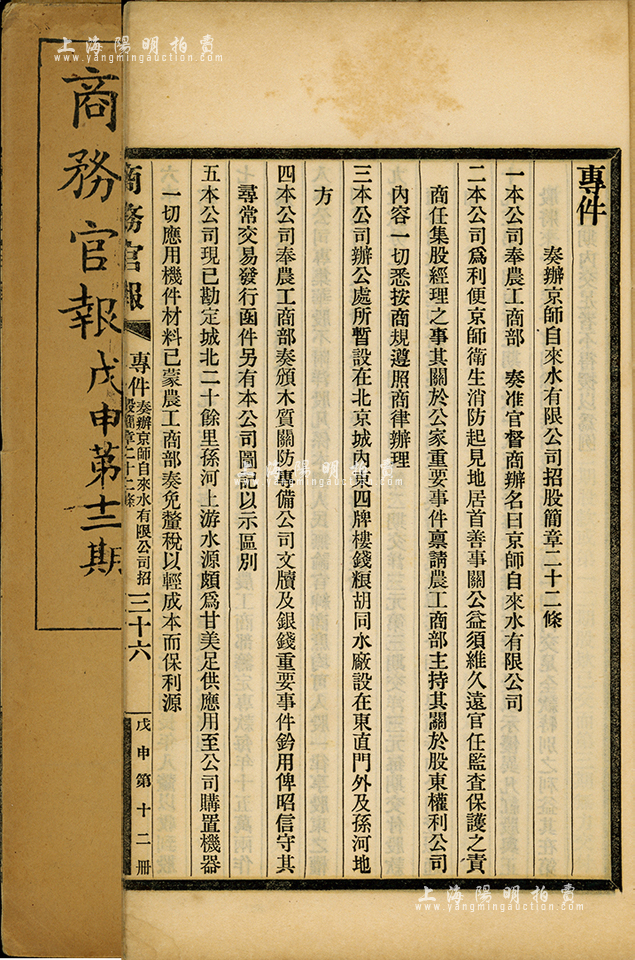 專件
奏辦京師自來水有限公司招股簡章二十二條
一本公司奉農工商部 奏准官督商辦名曰京師自來水有限公司
二本公司爲利便京師衛生消防起見地居首善事關公益須維久遠官任監查保護之責
商任集股經理之事其關於公家重要事件稟請農工商部主持其關於股東權利公司
內容一切悉按商規遵照商律辦理
三本公司辦公處所暫設在北京城內東四牌樓錢糧胡同水廠設在東直門外及孫河地
方
四本公司奉農工商部奏頒木質關防專備公司文牘及銀錢重要事件鈐用俾昭信守其
尋常交易發行函件另有本公司圖記以示區別
五本公司現已勘定城北二十餘里孫河上游水源頗爲甘美足供應用至公司購置機器
一切應用機件材料已蒙農工商部奏免釐稅以輕成本而保利源
商務官報 專件 奏辦京師自來水有限公司招股簡章二十二條 三十六 戊申第十二冊
商務官報戊申第十二期
上海陽明拍賣
www.yangmingauction.com
上海陽明拍賣
www.yangmingauction.com
上海陽明拍賣
www.yangmingauction.com